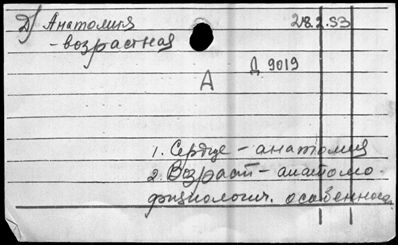 Д) Анатомия 28.2.53
- возрастная
Д. 9019
А
1. Сердце - анатомия
2. Возраст - анатомо-
физиологич. особеннос.